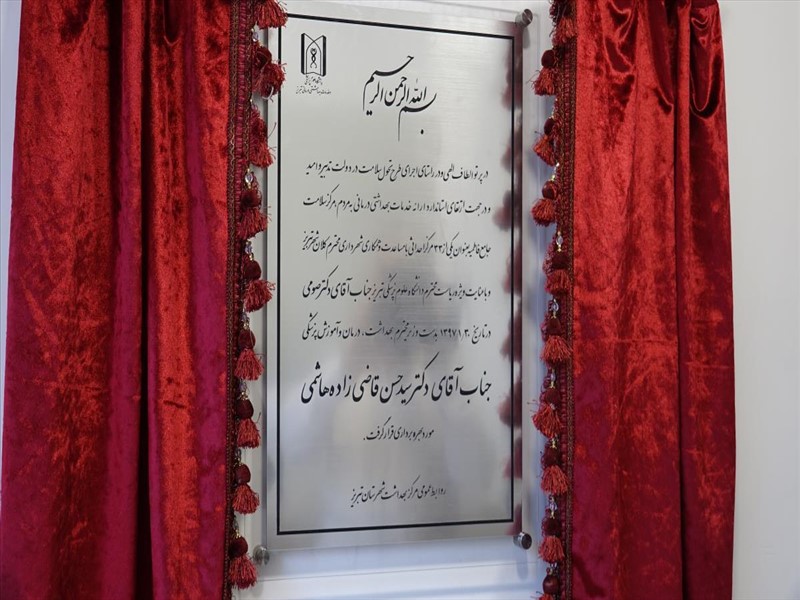 دانشگاه علوم پزشکی
و خدمات بهداشتی درمانی تبریز
بسم الله الرحمن الرحیم
در پرتو الطاف الهی و در راستای اجرای طرح تحول سلامت در دولت تدبیر و امید
و در جهت ارتقای استاندارد ارائه خدمات بهداشتی درمانی به مردم، مرکز سلامت
جامع فاطمیه بعنوان یکی از ۳۳ مرکز احداثی با مساعدت و همکاری شهرداری محترم کلان شهر تبریز
و با عنایت ویژه ریاست محترم دانشگاه علوم پزشکی تبریز جناب آقای دکتر صومی
در تاریخ ۱۳۹۷/۱/۳۰ بدست وزیر محترم بهداشت، درمان و آموزش پزشکی
جناب آقای دکتر سید حسن قاضی زاده هاشمی
مورد بهره برداری قرار گرفت.
روابط عمومی مرکز بهداشت شهرستان تبریز